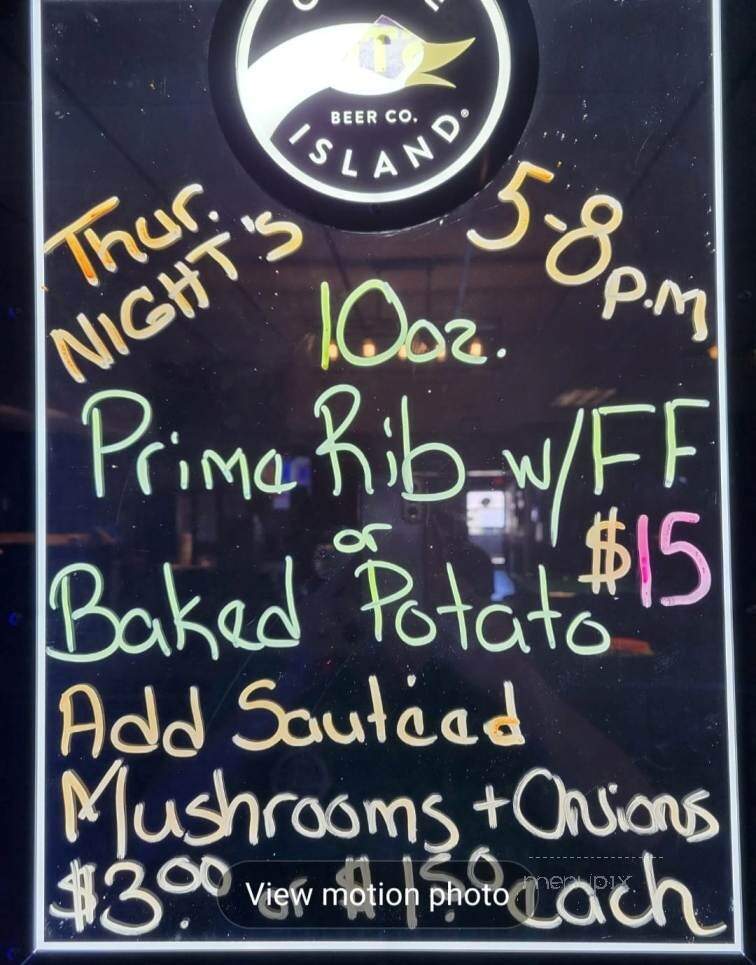 BEER CO.
ISLAND®
Thur.
NIGHT'S
5-8
p.m
10oz.
Prime Rib w/FF
or
$15
Baked Potato
Add Sauteed
Mushrooms + Onions
$3.00 or $1.50 each
View motion photo
menupix